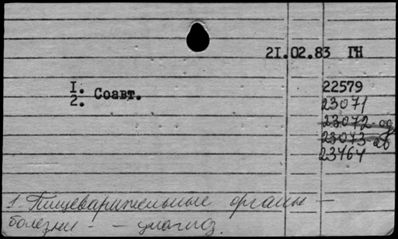 21.02.83 ГН
1. 22579
2. Соавт. 23071
23072-об
23073-об
23464
1. Пищеварительные органы -
болезни - - диагноз.